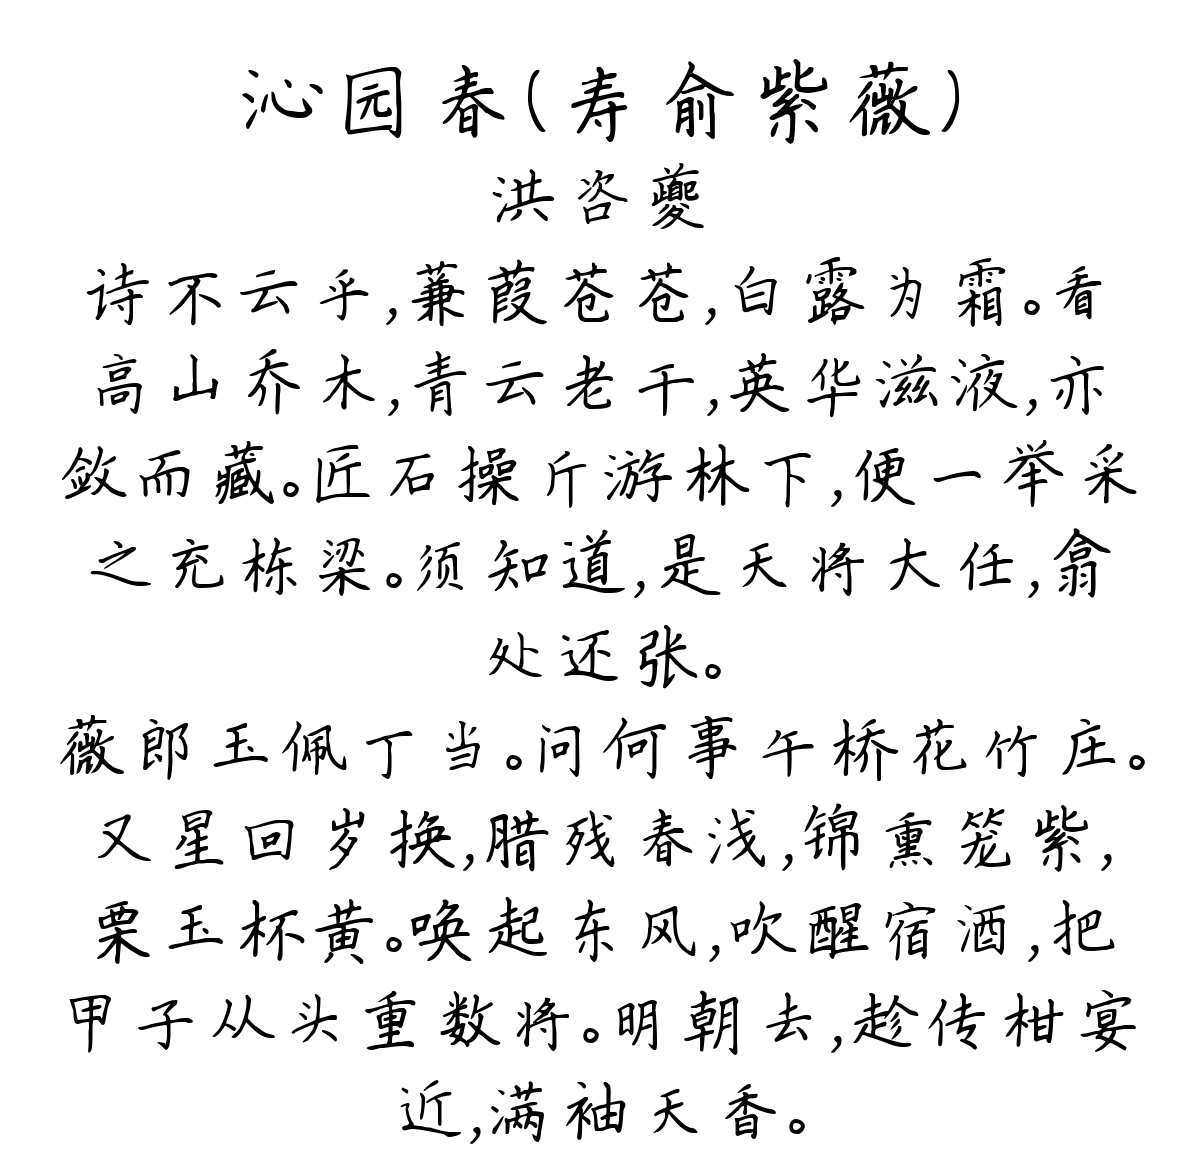 沁园春(寿俞紫薇)
洪咨夔
诗不云乎,蒹葭苍苍,白露为霜。看
高山乔木,青云老干,英华滋液,亦
敛而藏。匠石操斤游林下,便一举采
之充栋梁。须知道,是天将大任,翕
处还张。
薇郎玉佩丁当。问何事午桥花竹庄。
又星回岁换,腊残春浅,锦熏笼紫,
栗玉杯黄。唤起东风,吹醒宿酒,把
甲子从头重数将。明朝去,趁传柑宴
近,满袖天香。